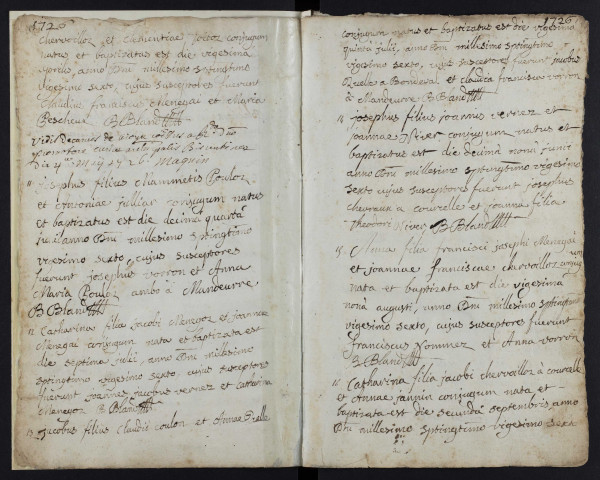 1726
chervoilloz et clementiae joloz conjugum
natus et baptizatus est die vigesima
aprilis, anno Dni millesimo sptingtimo
vigesimo sexto, cujus susceptores fuerunt
Claudius franciscus Menegai et Maria
Bescheua B Bland
die 4a Maij 1726 Maguin
josephus filius Mammetis Pouloz
et Antoniae juillias conjugum natus
et baptizatus est die decima quarta
anno Dni millesimo sptingtimo
vigesimo sexto, cujus susceptores
fuerunt josephus vorron et Anna
Maria Pouloz ambo à Mandeurre
B Bland
12 Catharina filia jacobi Menegoz et joannae
Menegai conjugum nata et baptizata est
die septima julii, anno Dni millesimo
sptingtimo vigesimo sexto, cujus susceptores
fuerunt joannes jacobus vernez et Catharina
Menegoz B Bland
13 jacobus filius claudii coulon et Annae Qualle
1726
conjugum natus et baptizatus est die vigesima
quinta julii, anno Dni millesimo sptingtimo
vigesimo sexto, cujus susceptores fuerunt jacobus
Quelle à Bondeval et claudia francisca vorron
à Mandeurre B Bland
josephus filius joannis vernez et
joannae conjugum natus et
baptizatus est die decima nona junii
anno Dni millesimo sptingtimo vigesimo
sexto cujus susceptores fuerunt josephus
chevraux à courcelle et joanna filia
theodori B Bland
15 Anna filia francisci josephi Menegai
et joannae franciscae chervoilloz conjugum
nata et baptizata est die vigesima
nona augusti, anno Dni millesimo sptingtimo
vigesimo sexto, cujus susceptores fuerunt
franciscus Pommez et Anna vorron
B Bland
Catharina filia jacobi chervoilloz à courcelle
et Annae jannin conjugum nata et
baptizata est die secunda septembris anno
Dni millesimo sptingtimo vigesimo sexto